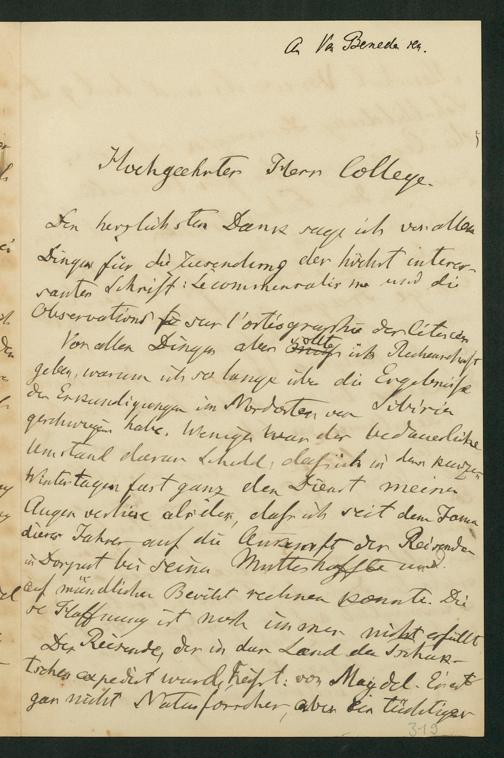 An Van Beneden.
Hochgeehrter Herr College.
Den herzlichsten Dank sage ich vor allen
Dingen für die Zusendung der höchst interes-
santen Schrift: Le commensalisme und die
Observations sur l'ostéographie des Cétacés
Vor allen Dingen aber sollte ich Rechenschaft
geben, warum ich so lange über die Ergebnisse
der Erkundigungen im Nordosten von Sibirien
geschwiegen habe. Weniger war der bedauerliche
Umstand daran Schuld, dass ich in den kurzen
Wintertagen fast ganz den Dienst meiner
Augen verliere als der, dass ich seit dem Januar
dieses Jahres auf die Ankunft des Reisenden
in Dorpat bei seiner Mutter hoffte und
auf mündlichen Bericht rechnen konnte. Die-
se Hoffnung ist noch immer nicht erfüllt
Der Reisende, der in das Land der Tschuk-
tschen expedirt wurde, heisst: von Maydel. Er ist
gar nicht Naturforscher, aber ein tüchtiger
3-19